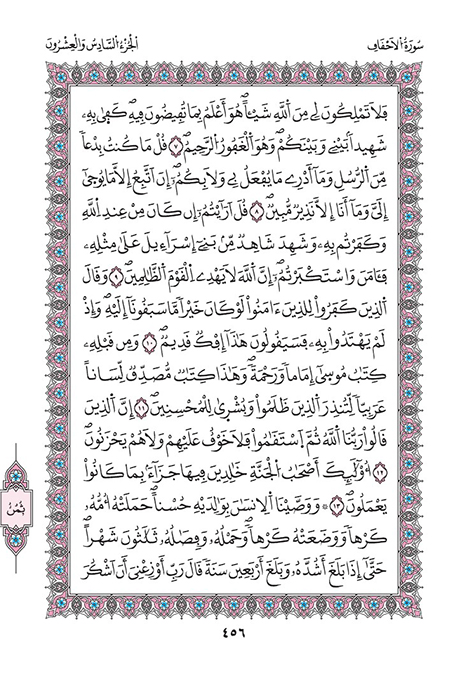 سُورَةُ اُلَاحْقَافِ
اُلْجُزْءُ اُلسَّادِسُ وَالْعِشْرُونَ
فَلَا تَمْلِكُونَ لِے مِنَ اَللَّهِ شَيْـٔاًۖ هُوَ أَعْلَمُ بِمَا تُفِيضُونَ فِيهِۖ كَف۪ىٰ بِهِۦ
شَهِيداَۢ بَيْنِے وَبَيْنَكُمْۖ وَهُوَ اَلْغَفُورُ اُلرَّحِيمُۖ ٧ قُلْ مَا كُنتُ بِدْعاٗ
مِّنَ اَلرُّسُلِ وَمَآ أَدْرِے مَا يُفْعَلُ بِے وَلَا بِكُمُۥٓۖ إِنَ اَتَّبِعُ إِلَّا مَا يُوح۪ىٰٓ
إِلَيَّ وَمَآ أَنَا إِلَّا نَذِيرٞ مُّبِينٞۖ ٨ قُلَ اَرَٰٓيْتُمُۥٓ إِن كَانَ مِنْ عِندِ اِللَّهِ
وَكَفَرْتُم بِهِۦ وَشَهِدَ شَاهِدٞ مِّنۢ بَنِےٓ إِسْرَآءِيلَ عَلَىٰ مِثْلِهِۦ
فَـَٔامَنَ وَاسْتَكْبَرْتُمُۥٓۖ إِنَّ اَللَّهَ لَا يَهْدِے اِلْقَوْمَ اَلظَّٰلِمِينَۖ ٩ وَقَالَ
اَلذِينَ كَفَرُواْ لِلذِينَ ءَامَنُواْ لَوْ كَانَ خَيْراٗ مَّا سَبَقُونَآ إِلَيْهِۖ وَإِذْ
لَمْ يَهْتَدُواْ بِهِۦ فَسَيَقُولُونَ هَٰذَآ إِفْكٞ قَدِيمٞۖ ١٠ وَمِن قَبْلِهِۦ
كِتَٰبُ مُوس۪ىٰٓ إِمَاماٗ وَرَحْمَةٗۖ وَهَٰذَا كِتَٰبٞ مُّصَدِّقٞ لِّسَاناً
عَرَبِيّاٗ لِّتُنذِرَ اَلذِينَ ظَلَمُواْ وَبُشْر۪ىٰ لِلْمُحْسِنِينَۖ ١١ إِنَّ اَلذِينَ
قَالُواْ رَبُّنَا اَللَّهُ ثُمَّ اَسْتَقَٰمُواْ فَلَا خَوْفٌ عَلَيْهِمْ وَلَا هُمْ يَحْزَنُونَۖ
١٢ أُوْلَٰٓئِكَ أَصْحَٰبُ اُلْجَنَّةِ خَٰلِدِينَ فِيهَا جَزَآءَۢ بِمَا كَانُواْ
يَعْمَلُونَۖ ١٣ وَوَصَّيْنَا اَلِانسَٰنَ بِوَٰلِدَيْهِ حُسْناًۖ حَمَلَتْهُ أُمُّهُۥ
كَرْهاٗ وَوَضَعَتْهُ كَرْهاٗۖ وَحَمْلُهُۥ وَفِصَٰلُهُۥ ثَلَٰثُونَ شَهْراًۖ
حَتَّىٰٓ إِذَا بَلَغَ أَشُدَّهُۥ وَبَلَغَ أَرْبَعِينَ سَنَةٗ قَالَ رَبِّ أَوْزِعْنِيَ أَنَ اَشْكُرَ
ثُمُنُ
٤٥٦